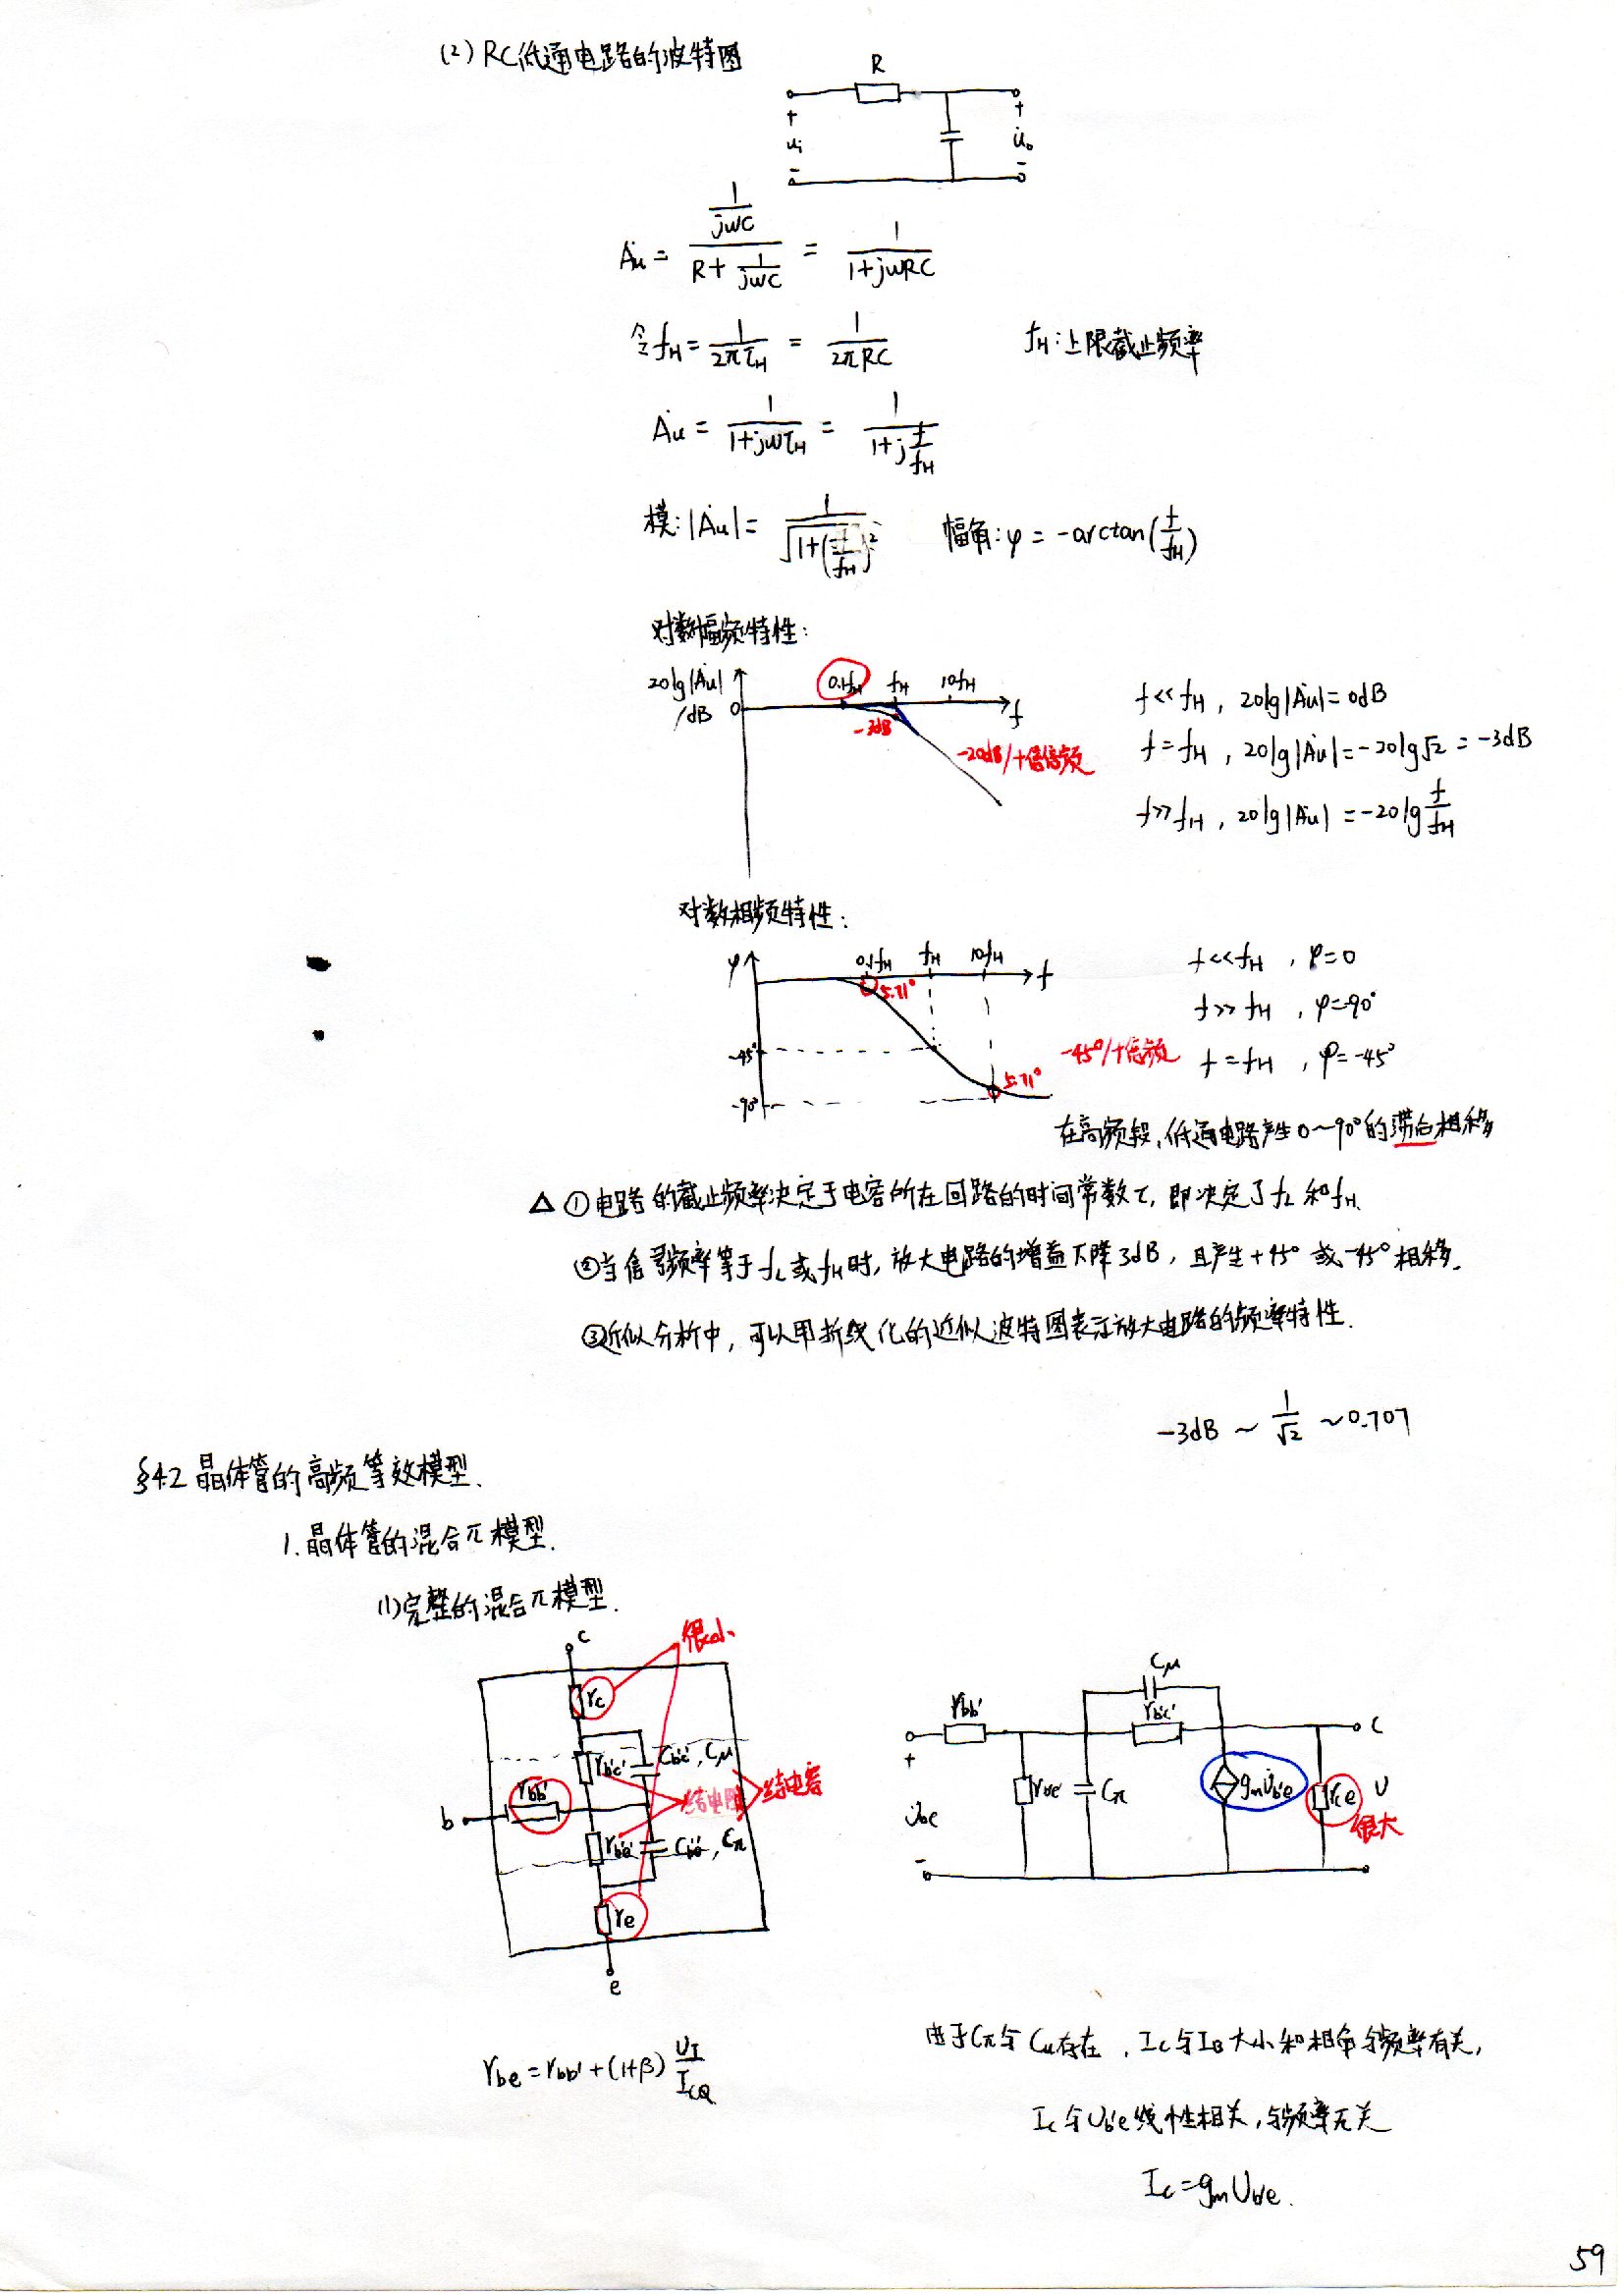 (2) RC低通电路的波特图
R
+ +
u̇i u̇o
- -
Ȧu = (1/jωC) / (R + 1/jωC) = 1/(1+jωRC)
令 fH = 1/(2πτH) = 1/(2πRC) fH:上限截止频率
Ȧu = 1/(1+jωτH) = 1/(1+j f/fH)
模:|Ȧu| = 1/√(1+(f/fH)²) 幅角:φ = -arctan(f/fH)
对数幅频特性:
20lg|Ȧu| /dB 0 0.1fH fH 10fH f
-3dB
-20dB/十倍频
f<<fH , 20lg|Ȧu|=0dB
f=fH , 20lg|Ȧu|=-20lg√2 = -3dB
f>>fH , 20lg|Ȧu| = -20lg f/fH
对数相频特性:
φ 0.1fH fH 10fH f
5.71°
-45°
-90°
5.71°
-45°/十倍频
f<<fH , φ=0
f>>fH , φ=-90°
f=fH , φ=-45°
在高频段,低通电路产生0~90°的滞后相移
△ ①电路的截止频率决定于电容所在回路的时间常数τ, 即决定了fL和fH.
②当信号频率等于fL或fH时, 放大电路的增益下降3dB, 且产生+45°或-45°相移.
③近似分析中, 可以用折线化的近似波特图表示放大电路的频率特性.
-3dB ~ 1/√2 ~0.707
§4.2 晶体管的高频等效模型.
1. 晶体管的混合π模型.
(1)完整的混合π模型.
c 很小
rc
rb'c' Cb'c', Cμ
rbb' 结电阻 结电容
b
rb'e' Cb'e', Cπ
re
e
Cμ
rbb' rb'c' c
+
rb'e Cπ gmU̇b'e rce U
U̇be 很大
-
rbe = rbb' + (1+β) UT/ICQ
由于Cπ与Cμ存在, Ic与IB大小和相角与频率有关,
Ic与Ub'e线性相关, 与频率无关
Ic = gmUb'e.
59